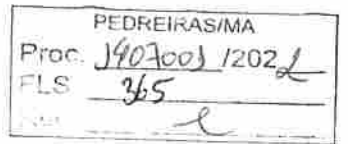 PEDREIRAS/MA
Proc. 1407001 /2022
FLS. 365